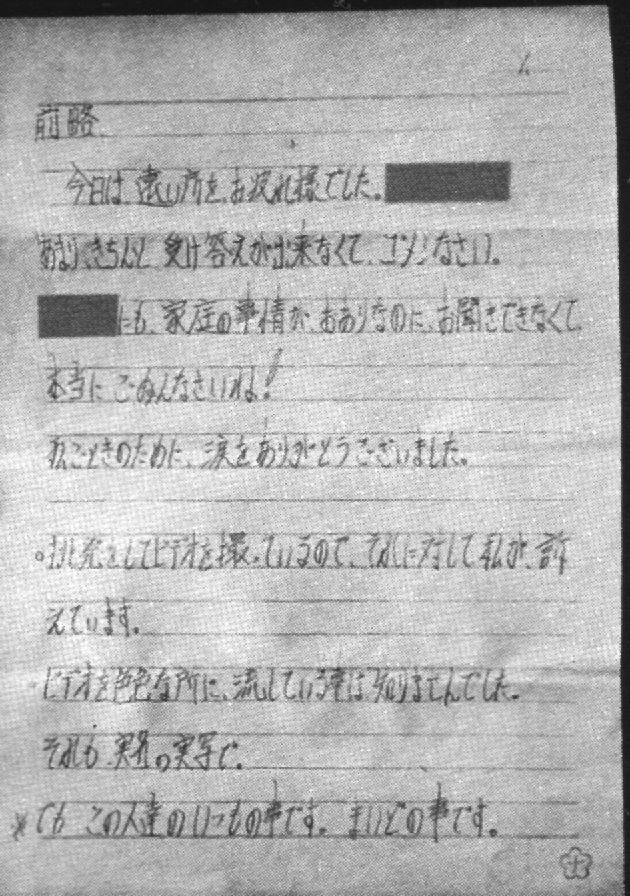 前略
今日は、遠い所を、お疲れ様でした。
あまり、きちんと、受け答えが出来なくて、ゴメンなさい。
にも、家庭の事情が、おありなのに、お聞きできなくて
本当に ごめんなさいね!
私ごときのために、涙をありがとうございました。
。挑発をしてビデオを撮っているので、それに対して私が、訴
えています。
ビデオを色色な所に、流している事は知りませんでした。
それも 実名の実写で。
※でも この人達のいつもの事です。まいどの事です。